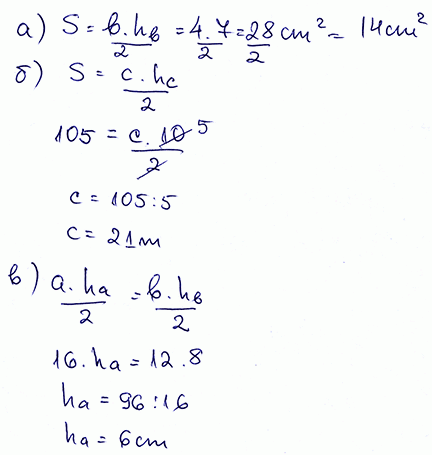 а) S = b.hb/2 = 4.7/2 = 28/2 cm² = 14cm²
б) S = c.hc/2
105 = c.10 5/2
c = 105:5
c = 21m
в) a.ha/2 = b.hb/2
16.ha = 12.8
ha = 96:16
ha = 6cm